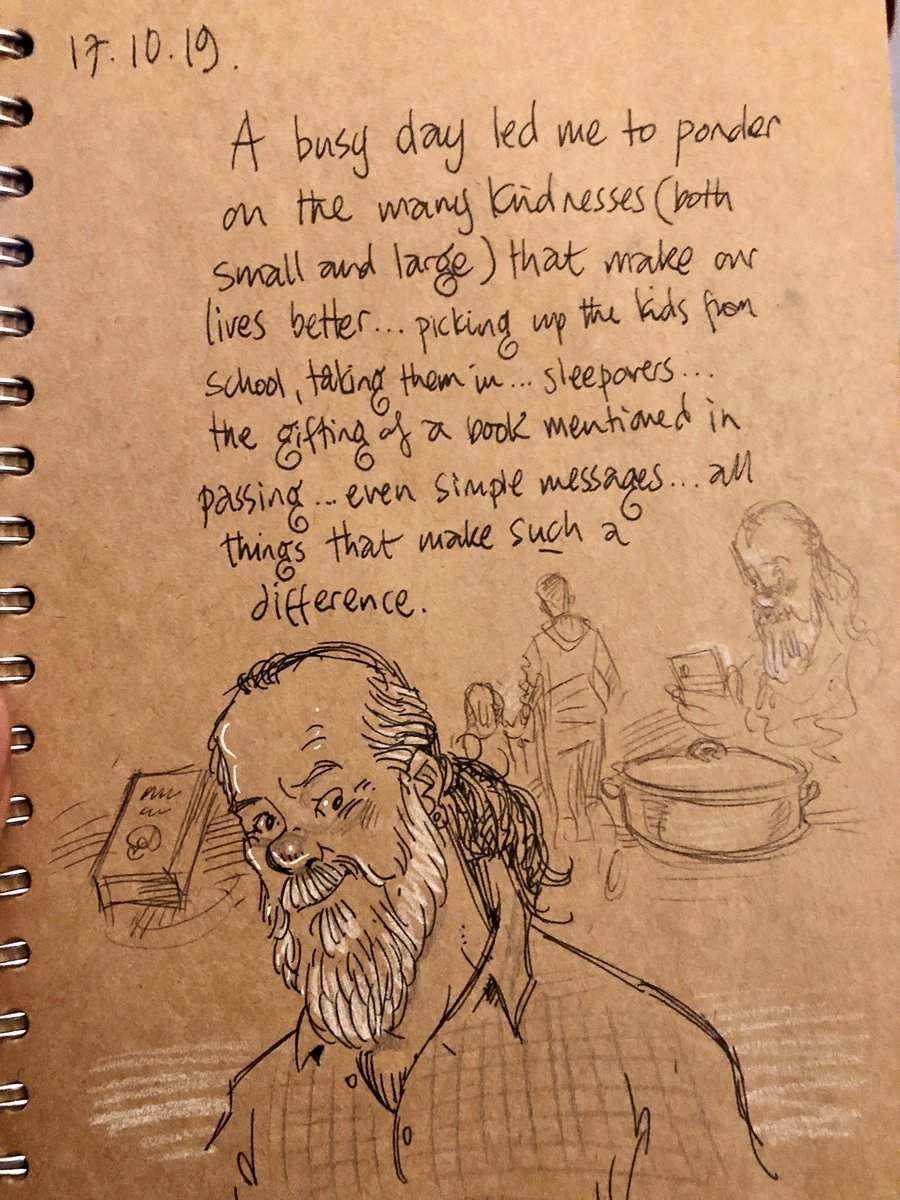 17.10.19.
A busy day led me to ponder
on the many kindnesses (both
small and large) that make our
lives better... picking up the kids from
school, taking them in... sleepovers...
the gifting of a book mentioned in
passing... even simple messages... all
things that make such a
difference.